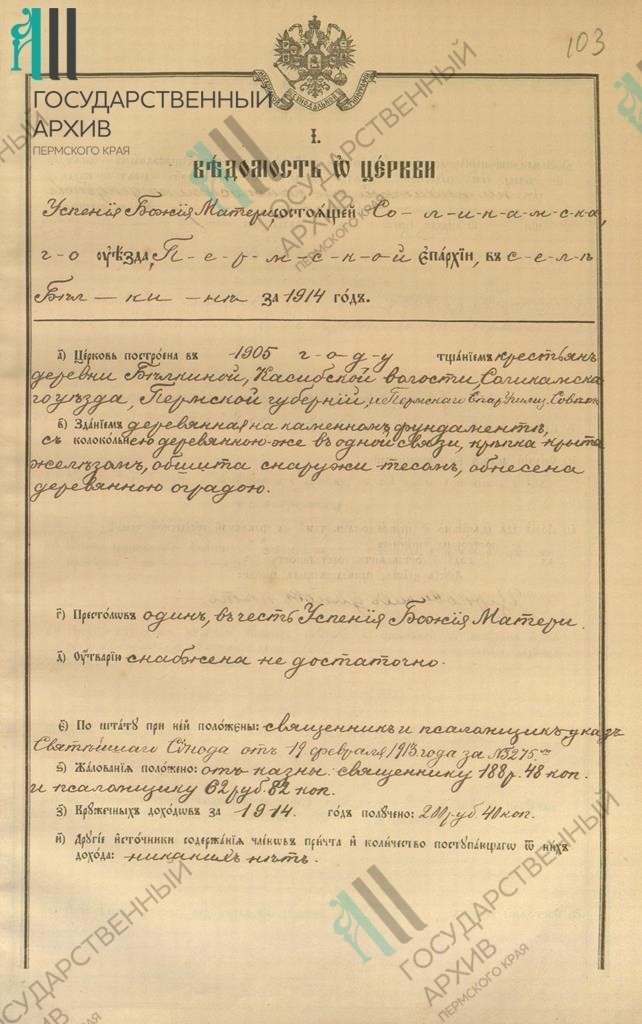 103
ГОСУДАРСТВЕННЫЙ
АРХИВ
ПЕРМСКОГО КРАЯ
I.
ВѢДОМОСТЬ Ѡ ЦЕРКВИ
Успенія Божія Матери, состоящей Со-ликамска-
го уѣзда, Пермской епархіи, въ селѣ
Бѣлкинѣ за 1914 годъ.
а) Церковь построена въ 1905 году тщаніемъ крестьянъ
деревни Бѣлкиной, Касибской волости, Соликамска-
го уѣзда, Пермской губерніи, и Пермскаго Епар. Училищ. Совѣта
б) Зданіемъ деревянная на каменномъ фундаментѣ,
съ колокольнею деревянною-же въ одной связи, крѣпка, крыта
желѣзомъ, обшита снаружи тесомъ, обнесена
деревянною оградою.
г) Престоловъ одинъ, въ честь Успенія Божія Матери.
д) Оутварію снабжена не достаточно.
е) По штату при ней положены: священникъ и псаломщикъ, указъ
Святѣйшаго Сѵнода отъ 19 февраля 1913 года за №3275.
ѕ) Жалованія положено: отъ казны: священнику 188 р. 48 коп.
и псаломщику 62 руб. 82 коп.
з) Кружечныхъ доходовъ за 1914 годъ получено: 200 руб. 40 коп.
и) Другіе источники содержанія членовъ причта и количество поступающаго ѿ нихъ
дохода: никакихъ нѣтъ.
ГОСУДАРСТВЕННЫЙ
АРХИВ
ПЕРМСКОГО КРАЯ